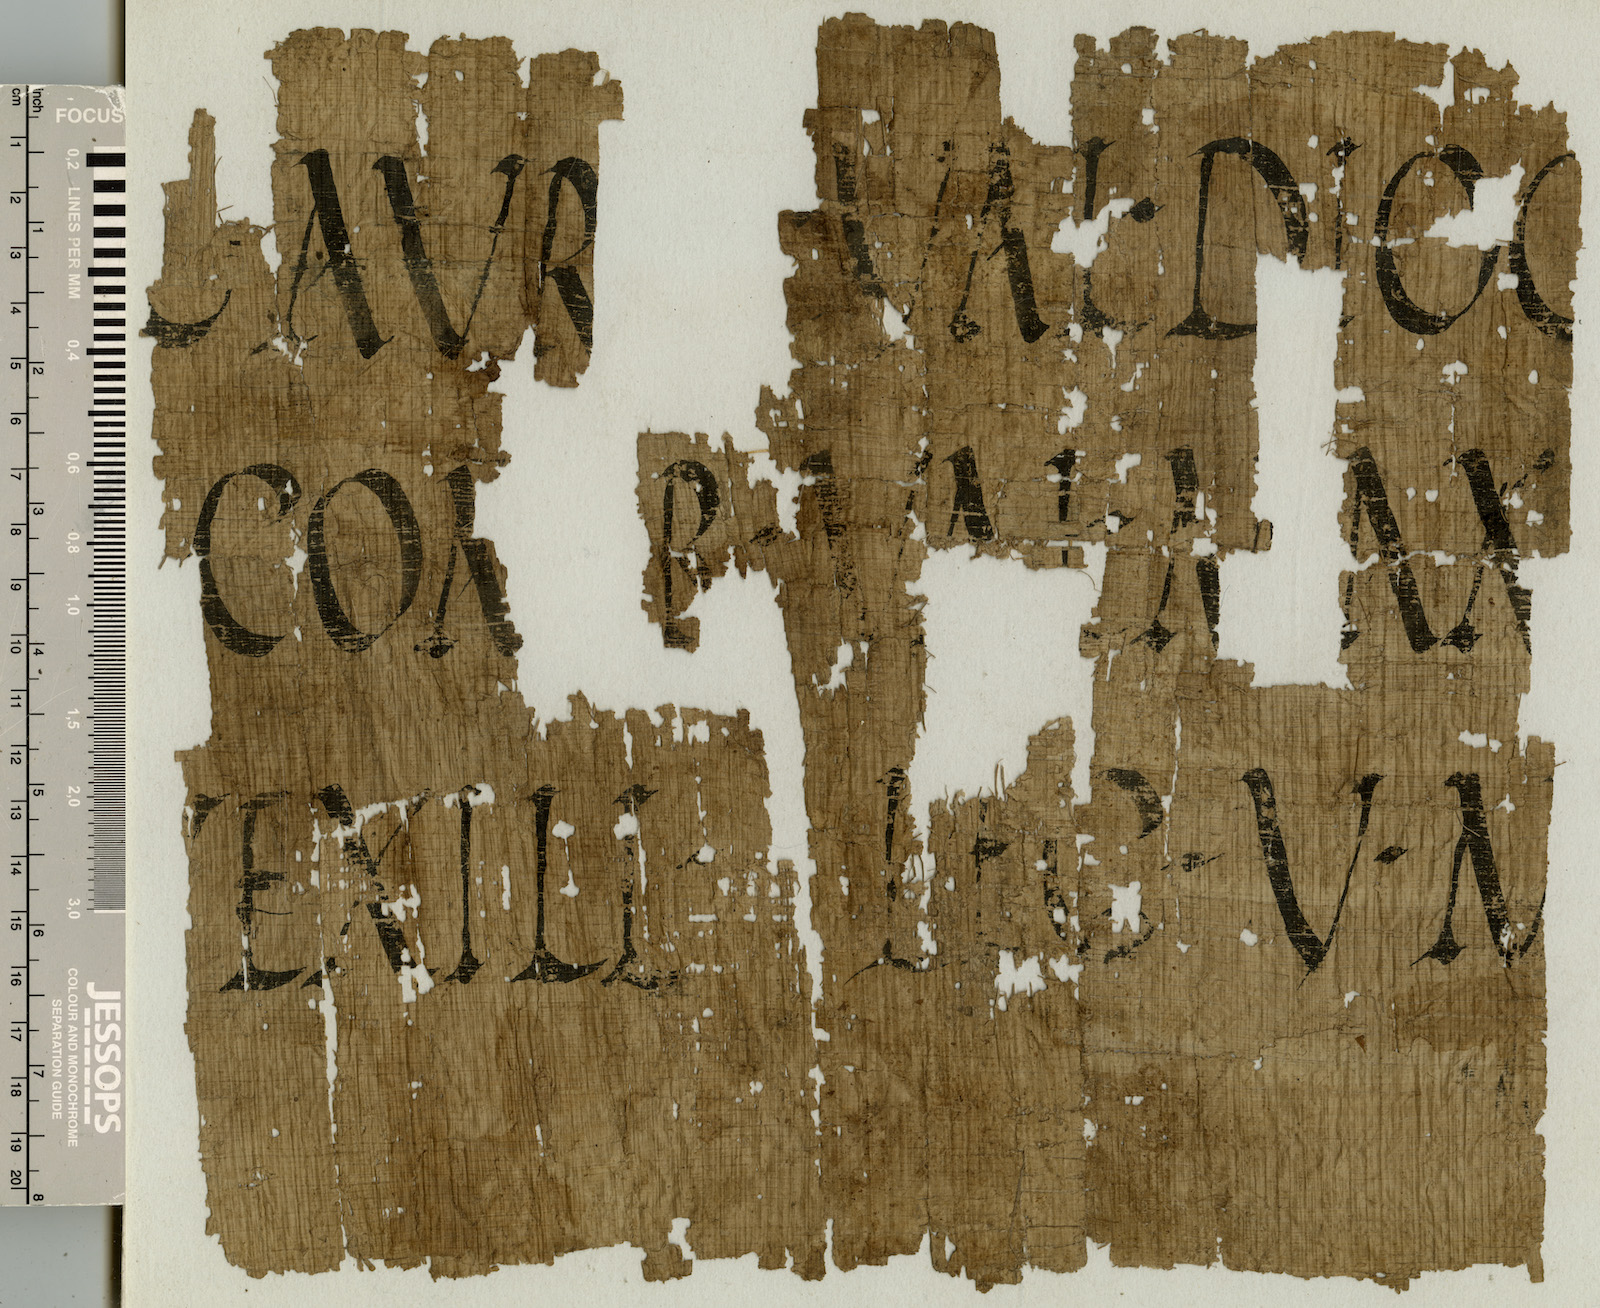 C AVR VAL · DIOC
CO P · VAL · MAX
EXILL LEG · V · M
cm
inch
FOCUS
LINES PER MM
0,2 0,4 0,6 0,8 1,0 1,5 2,0 3,0
1 2 3 4 5 6 7 8 9 10 11 12 13 14 15 16 17 18 19 20
1 2 3 4 5 6 7 8
JESSOPS
COLOUR AND MONOCHROME
SEPARATION GUIDE